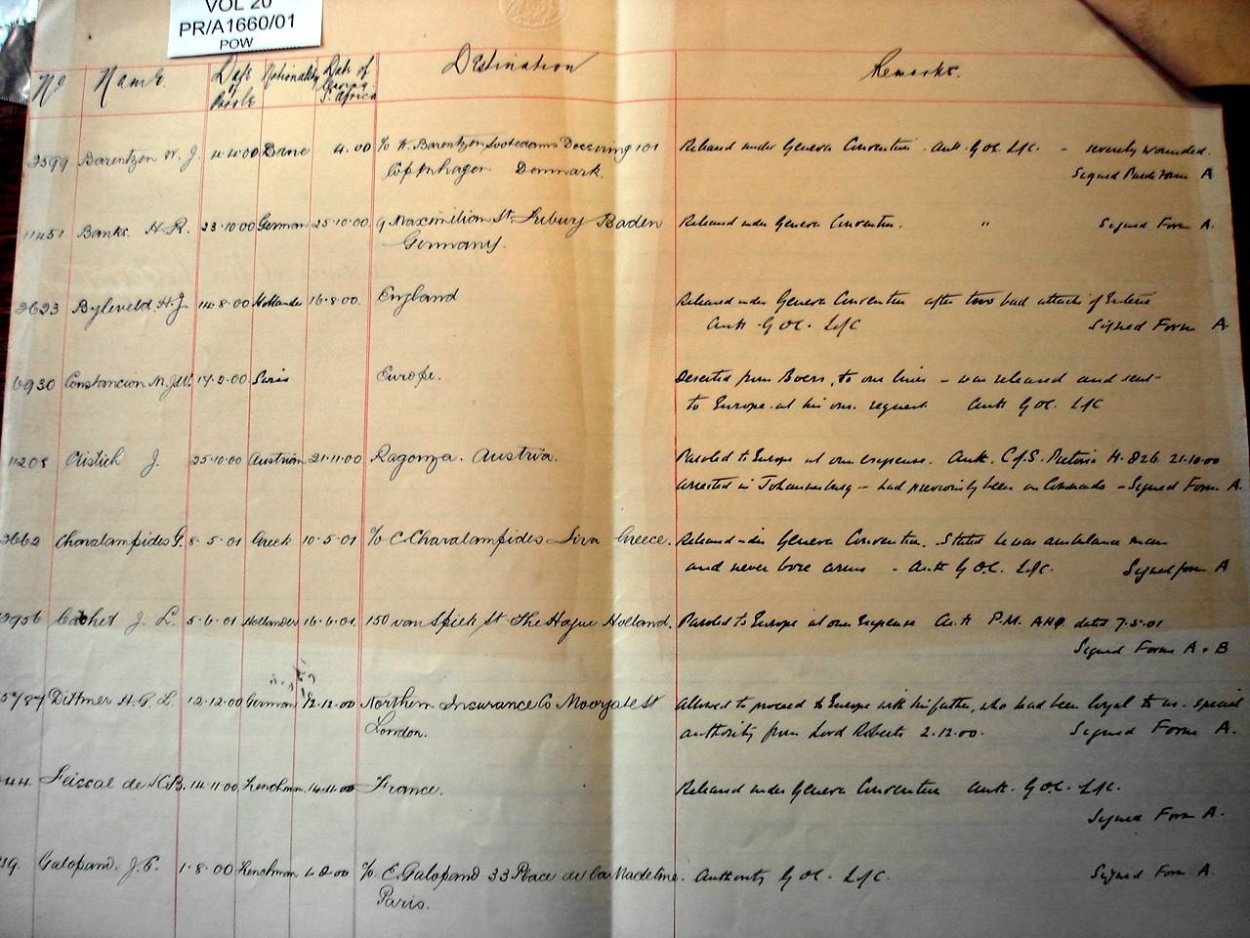 VOL 20
PR/A1660/01
POW
No Name Date of Parole Nationality Date of leaving S. Africa Destination Remarks.
2599 Barentzen W. J. 4.4.00 Dane 4.00 c/o W. Barentzen 101 Released under Geneva Convention. Auth. G.O.C. L/C. - severely wounded.
Copenhagen Denmark. Signed Parole Form A
11451 Banks. H R. 23.10.00 German 25.10.00. 9 Maxmilian St. Friburg Baden Released under Geneva Convention. " Signed Form A.
Germany.
2623 Byleveld. H. J. 14.8.00 Hollander 16.8.00. England Released under Geneva Convention after two bad attacks of Enteric
Auth. G.O.C. L/C Signed Form A.
6930 Constancon M. 00 Swiss Europe. Deserted from Boers, to our lines - was released and sent
to Europe at his own request Auth G.O.C. L/C
11208 J. 25.10.00 Austrian 21.11.00 Austria. Paroled to Europe at own expense. Auth. C of S. Pretoria 21.10.00
arrested in Johannesburg - had previously been on Commando - Signed Form A.
2662 Charalampides G. 8.5.01 Greek 10.5.01 c/o C. Charalampides Greece. Released under Geneva Convention. States he was ambulance man
and never bore arms - Auth G.O.C. L/C. Signed form A
Cachet J. L. 5.6.01 Hollander 16.6.01 150 van Spiek St The Hague Holland. Paroled to Europe at own Expense Auth P.M. AHQ dated 7.5.01
Signed Forms A + B
Dittmer H. G. L. 12.12.00 German 12.12.00 Northern Insurance Co Moorgate St Allowed to proceed to Europe with his father, who had been loyal to us - special
London. authority from Lord Roberts 2.12.00. Signed Form A.
44 Feissal de K. B. 14.11.00 Frenchman 14.11.00 France. Released under Geneva Convention Auth. G.O.C. L/C.
Signed Form A.
19. Galopand. J. E. 1.8.00 Frenchman c/o E. Galopand 33 Place de la Madeline. Authority G.O.C. L/C. Signed Form A.
Paris.